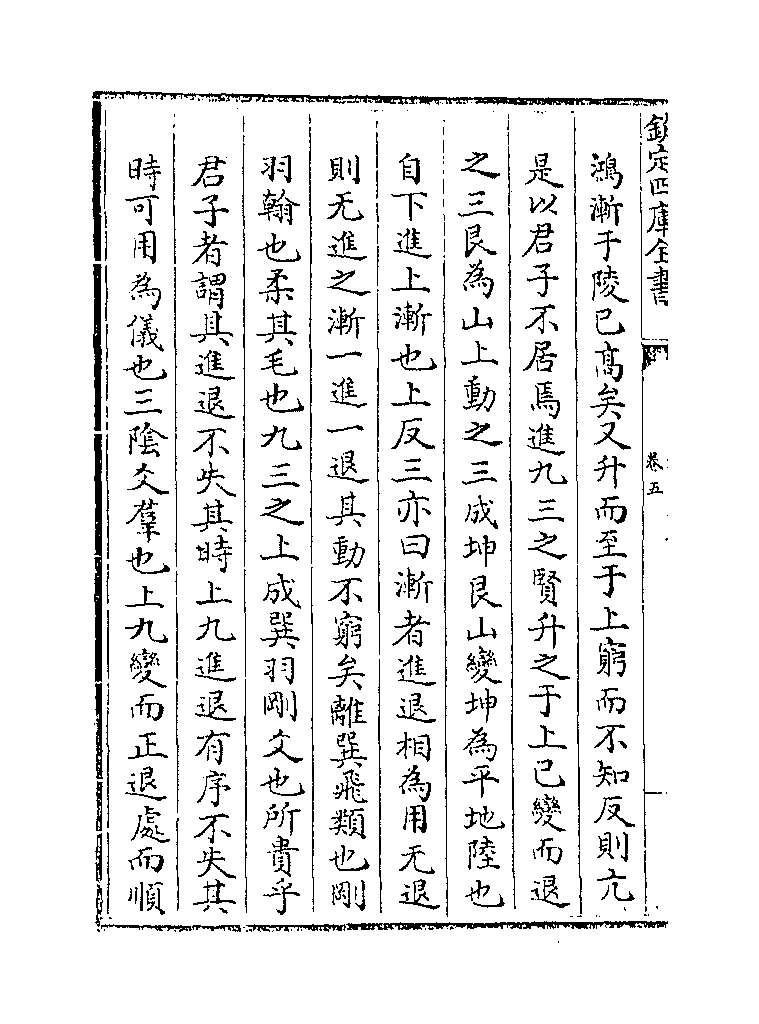 欽定四庫全書
卷五
鴻漸于陵已髙矣又升而至于上窮而不知反則亢
是以君子不居焉進九三之賢升之于上已變而退
之三艮為山上動之三成坤艮山變坤為平地陸也
自下進上漸也上反三亦曰漸者進退相為用无退
則无進之漸一進一退其動不窮矣離巽飛類也剛
羽翰也柔其毛也九三之上成巽羽剛文也所貴乎
君子者謂其進退不失其時上九進退有序不失其
時可用為儀也三隂爻羣也上九變而正退處而順